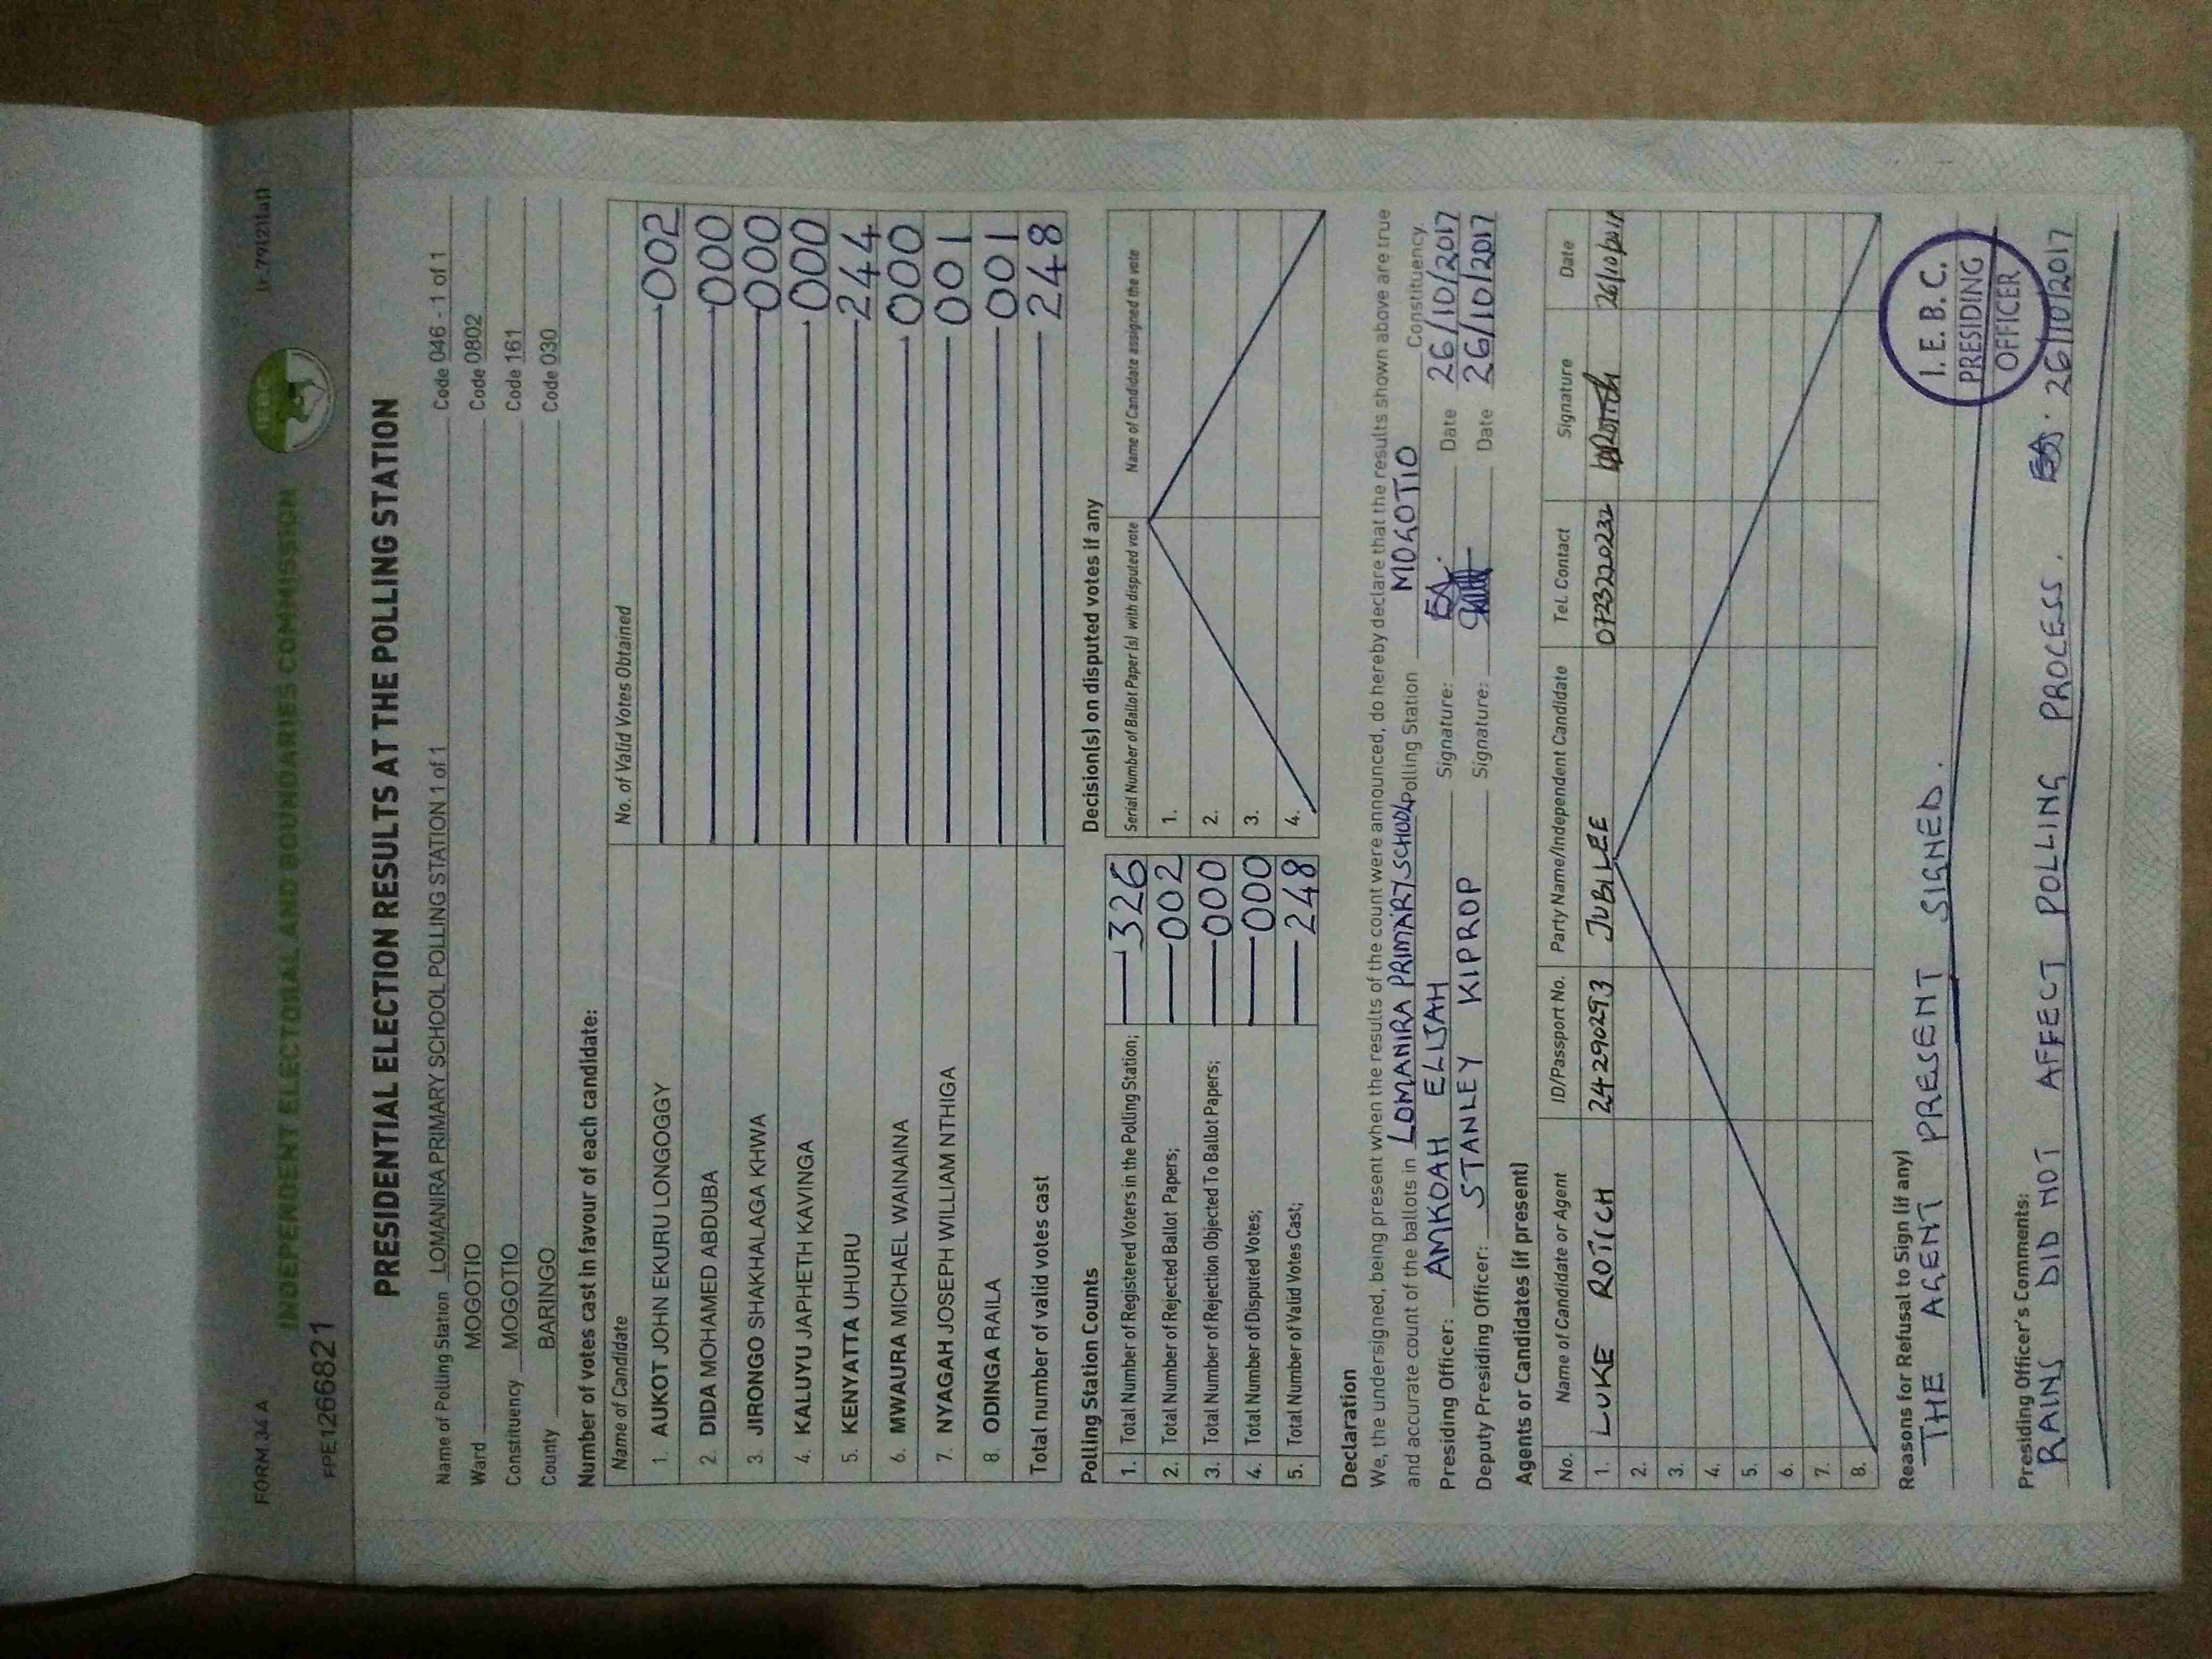 FORM 34 A
INDEPENDENT ELECTORAL AND BOUNDARIES COMMISSION
IEBC
FPE1266821
PRESIDENTIAL ELECTION RESULTS AT THE POLLING STATION
Name of Polling Station LOMANIRA PRIMARY SCHOOL POLLING STATION 1 of 1 Code 046 - 1 of 1
Ward MOGOTIO Code 0802
Constituency MOGOTIO Code 161
County BARINGO Code 030
Number of votes cast in favour of each candidate:
Name of Candidate No. of Valid Votes Obtained
1. AUKOT JOHN EKURU LONGOGGY 002
2. DIDA MOHAMED ABDUBA 000
3. JIRONGO SHAKHALAGA KHWA 000
4. KALUYU JAPHETH KAVINGA 000
5. KENYATTA UHURU 244
6. MWAURA MICHAEL WAINAINA 000
7. NYAGAH JOSEPH WILLIAM NTHIGA 001
8. ODINGA RAILA 001
Total number of valid votes cast 248
Polling Station Counts
1. Total Number of Registered Voters in the Polling Station; 326
2. Total Number of Rejected Ballot Papers; 002
3. Total Number of Rejection Objected To Ballot Papers; 000
4. Total Number of Disputed Votes; 000
5. Total Number of Valid Votes Cast; 248
Decision(s) on disputed votes if any
Serial Number of Ballot Paper (s) with disputed vote Name of Candidate assigned the vote
1.
2.
3.
4.
Declaration
We, the undersigned, being present when the results of the count were announced, do hereby declare that the results shown above are true
and accurate count of the ballots in LOMANIRA PRIMARY SCHOOL Polling Station MOGOTIO Constituency.
Presiding Officer: AMKOAH ELIJAH Signature: Date 26/10/2017
Deputy Presiding Officer: STANLEY KIPROP Signature: Date 26/10/2017
Agents or Candidates (if present)
No. Name of Candidate or Agent ID/Passport No. Party Name/Independent Candidate Tel. Contact Signature Date
1. LUKE ROTICH 24290293 JUBILEE 0723220232
2.
3.
4.
5.
6.
7.
8.
Reasons for Refusal to Sign (if any)
THE AGENT PRESENT SIGNED.
I. E. B. C.
PRESIDING
OFFICER
Presiding Officer's Comments:
RAINS DID NOT AFFECT POLLING PROCESS. 26/10/2017